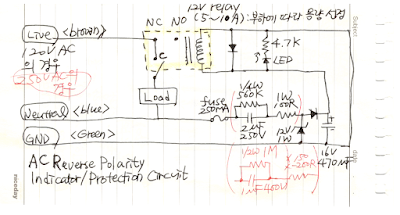 12V relay
NC NO (5~10A): 부하에 따라 용량 선정
Live <brown>
120V AC
의 경우
250V AC의
경우
C
4.7K
LED
Load
Neutral <blue>
fuse
250MA
1/4W
560K
2uF
250V
1W
100R
12V
1W
16V
470uF
GND <Green>
AC Reverse Polarity
Indicator/Protection Circuit
1/2W 1M
1uF 400V
Subject
date